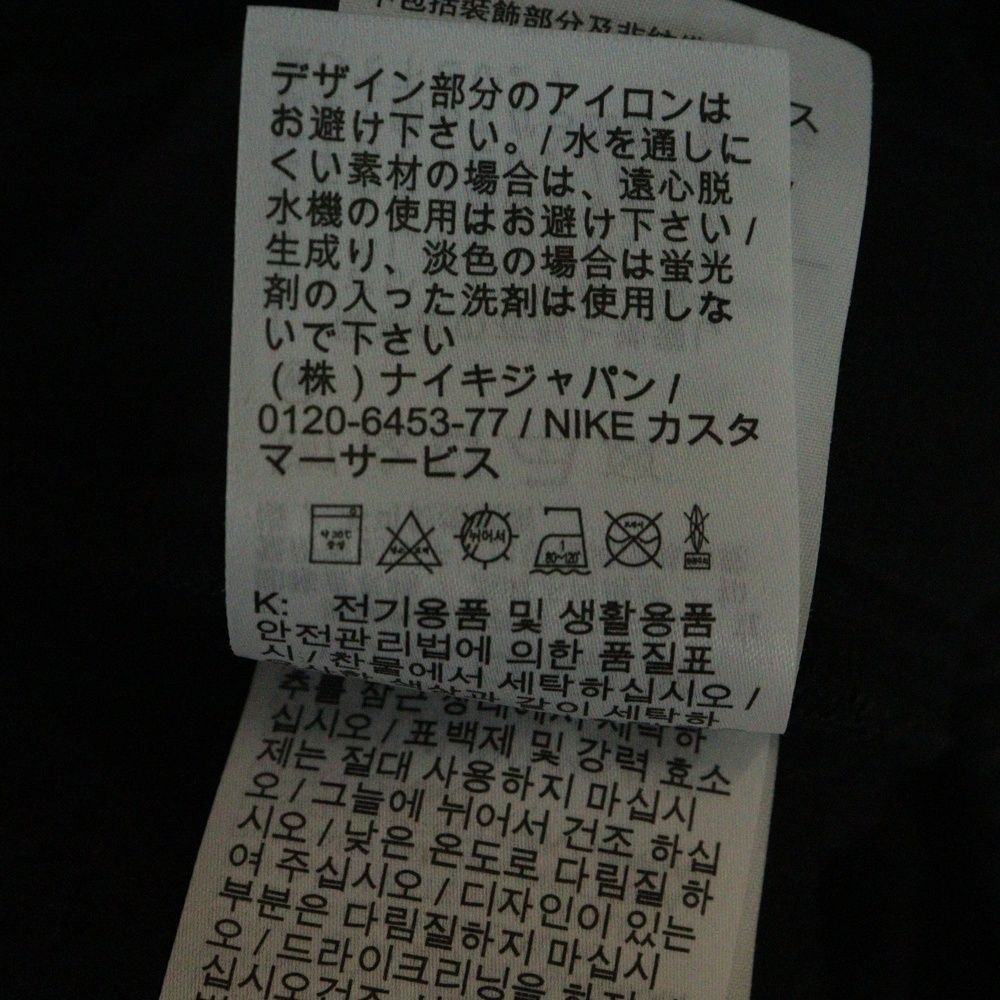 不包括裝飾部分及非紡織
デザイン部分のアイロンは
お避け下さい。/ 水を通しに
くい素材の場合は、遠心脱
水機の使用はお避け下さい /
生成り、淡色の場合は蛍光
剤の入った洗剤は使用しな
いで下さい
(株) ナイキジャパン /
0120-6453-77 / NIKE カスタ
マーサービス
ス
약 30℃
중성
뉘어서
1
80~120°
드라이
K: 전기용품 및 생활용품
안전관리법에 의한 품질표
시 / 찬물에서 세탁하십시오 /
색상과 같이 세탁하
십시오 / 표백제 및 강력 효소
제는 절대 사용하지 마십시
오 / 그늘에 뉘어서 건조 하십
시오 / 낮은 온도로 다림질 하
여 주십시오 / 디자인이 있는
부분은 다림질하지 마십시
오 / 드라이크리닝을 하지
십시오건조